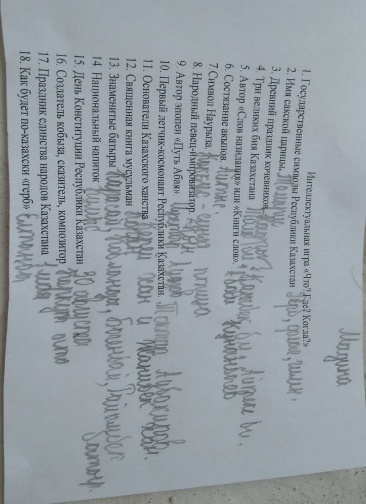 Мадина
Интеллектуальная игра «Что? Где? Когда?»
1. Государственные символы Республики Казахстан герб, флаг, гимн.
2. Имя сакской царицы. Томирис
3. Древний праздник кочевников Наурыз
4. Три великих бия Казахстана Толе би, Казыбек би, Айтеке би.
5. Автор «Слов назидания» или «Книги слов». Абай Кунанбаев
6. Состязание акынов. Айтыс
7. Символ Наурыза. птица
8. Народный певец-импровизатор. Акын
9. Автор эпопеи «Путь Абая» Мухтар Ауэзов
10. Первый летчик-космонавт Республики Казахстан. Токтар Аубакиров.
11. Основатели Казахского ханства Керей хан и Жанибек хан.
12. Священная книга мусульман Коран
13. Знаменитые батыры батыр.
14. Национальный напиток
15. День Конституции Республики Казахстан 30 августа
16. Создатель кобыза, сказитель, композитор Коркыт ата
17. Праздник единства народов Казахстана 1 мая
18. Как будет по-казахски «герб» Елтаңба